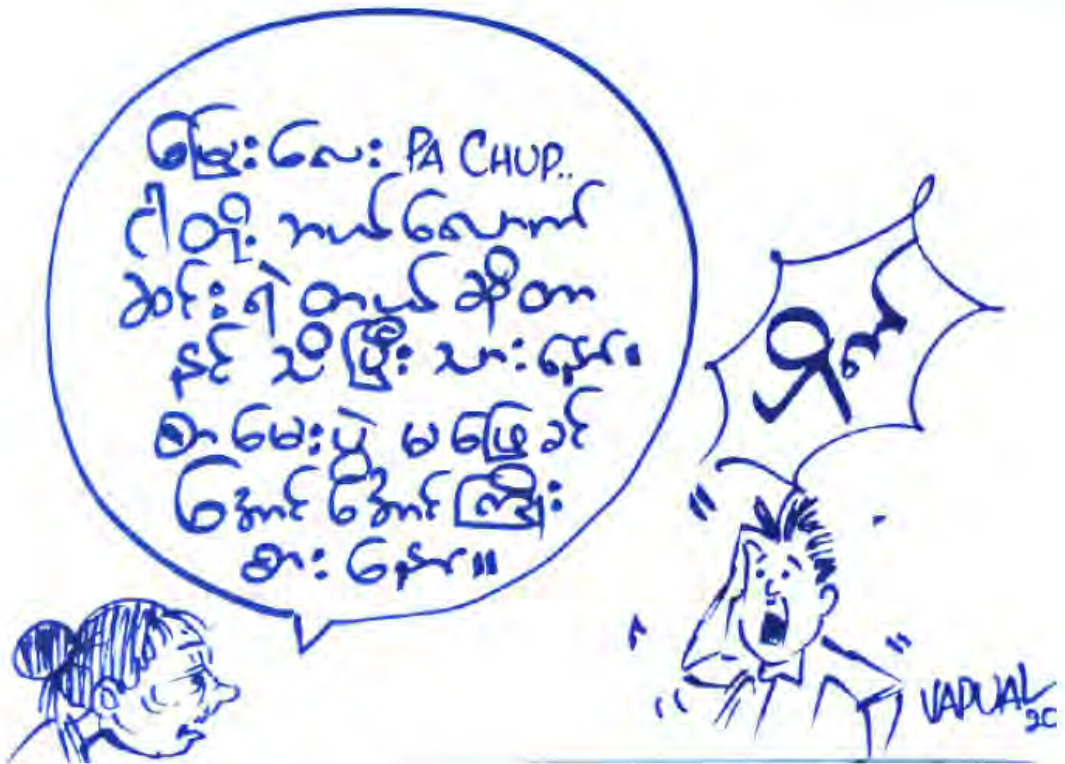 မြေးလေး PA CHUP..
ငါတို့ ဘယ်လောက်
ဆင်းရဲ တယ် ဆိုတာ
နင် သိ ပြီး သားနော်။
စာမေးပွဲ မဖြေခင်
အောင်အောင်ကြိုး
စား နော်။
VAPUAL